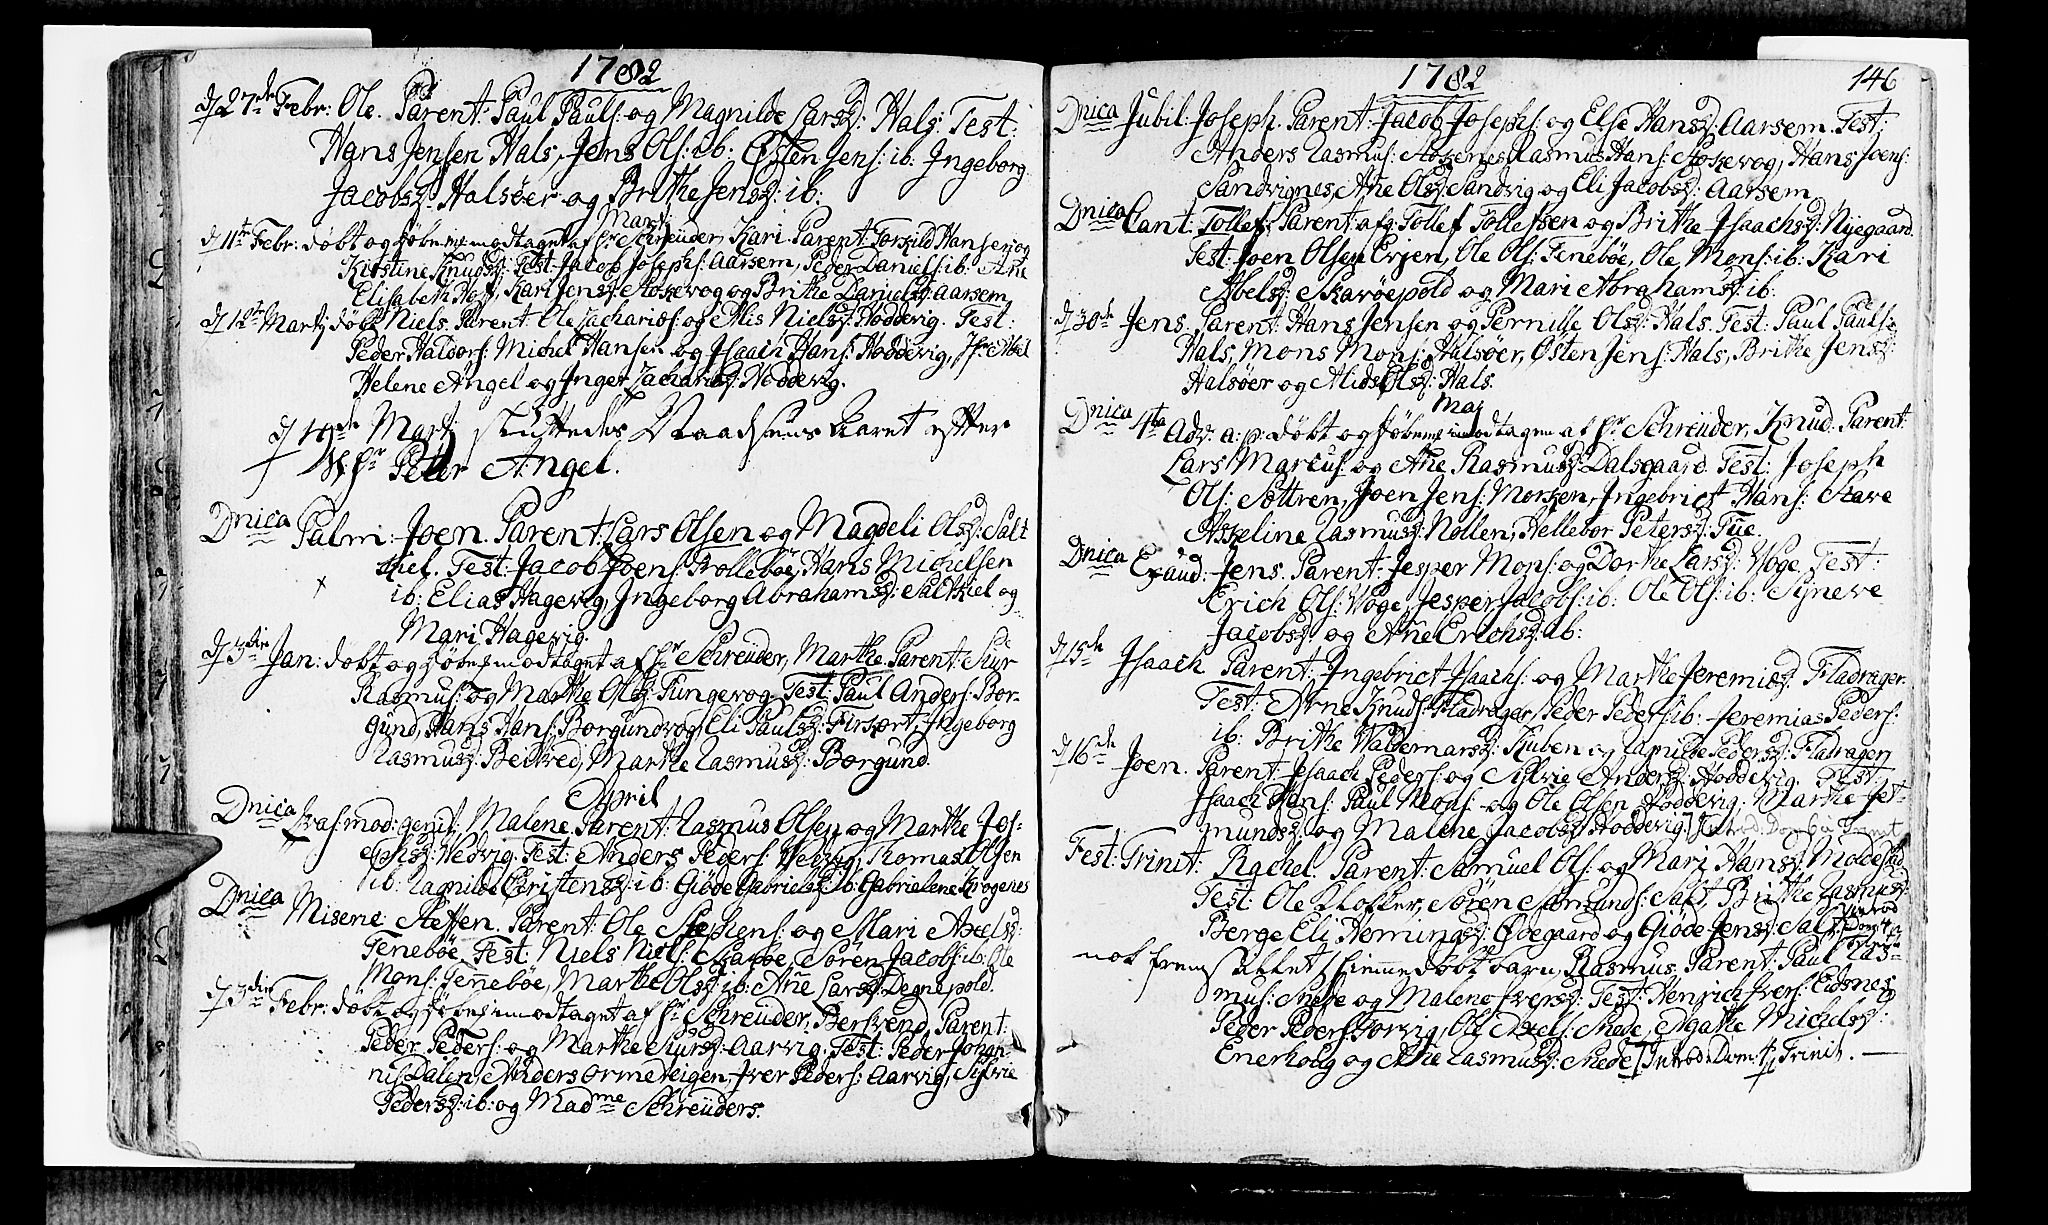 1782
d 27de Febr: Ole. Parent: Paul Pauls: og Magnilde Larsd: Hals: Test:
Hans Jensen Hals, Jens Ols: ib: Østen Jens: ib: Ingeborg
Jacobsd: Halsøer og Brithe Jensd: ib:
Martj
d 11te Febr: døbt og hiemmedøbt modtaget af hr Schreuder, Kari. Parent: Torkild Hansen og
Kirstine Knudsd: Test: Jacob Josephs: Aarsem, Peder Daniels: ib: Ane
Elisabeth Hof, Kari Jensd: Stokkevog og Brithe Danielsd: Aarsem
d 12te Martj døbt Niels. Parent: Ole Zacharias: og Alis Nielsd: Hoddevig. Test:
Peder Haldors: Michel Hansen og Isaach Hans: Hoddevig, Jfr Abel
Helene Angel og Inger Zachariæd: Hoddevig.
d 19de Martj sluttedes Naadsens Aaret efter
S. hr Peter Angel.
Dnica Palm: Joen. Parent: Lars Olsen og Magdeli Olsd: Salt
kiel. Test: Jacob Joens: Trollebøe, Hans Michelsen
ib: Elias Hagevig, Ingeborg Abrahamsd: Saltkiel og
Mari Hagevig.
d 3die Jan: døbt og modtaget af hr Schreuder, Marthe. Parent: Siur
Rasmus: og Marthe Olsd: Tungevog. Test: Paul Anders: Bor-
gund, Hans Hans: Borgundvog, Eli Paulsd: Tirsært, Ingeborg
Rasmusd: Beitved, Marthe Rasmusd: Borgund.
April
Dnica Qvasimod: genit: Malene. Parent: Rasmus Olsen og Marthe Jos-
ephsd: Nedvig. Test: Anders Peders: Nedvig, Thomas Olsen
ib: Ragnilde Christensd: ib: Giøde Gabrielsd: ib: Gabrielene Krogenes
Dnica Miseric: Steffen. Parent: Ole Stephens: og Mari Axelsd:
Tenebøe. Test: Niels Niels: Skarbøe, Søren Jacobs: ib: Ole
Mons: Tennebøe, Marthe Olsd: ib: Ane Larsd: Degnepold.
d 3die Febr: døbt og modtaget af hr Schreuder, Berthend, Parent:
Peder Peders: og Marthe Siursd: Aarvig. Test: Peder Johan-
nis: Dalen, Anders Ormeteigen, Iver Peders: Aarvig, Sivrie
Pedersd: ib: og Madme Schreuders.
1782 146
Dnica Jubil: Joseph. Parent: Jacob Josephs: og Else Hansd: Aarsem. Test:
Anders Rasmus: Stokkenes, Rasmus Hans: Stokkevog, Hans Joens:
Sandvignes, Ane Olsd: Sandvig og Eli Jacobsd: Aarsem
Dnica Cant: Tollef: Parent: afg: Tollef Tollefsen og Brithe Isaachsd: Nyegaard.
Test: Joen Olsen Erjen, Ole Ols: Tenebøe, Ole Mons: ib: Kari
Abelsd: Skarøepold og Mari Abrahamsd: ib:
d 30te Jens. Parent: Hans Jensen og Pernille Olsd: Hals. Test: Paul Pauls:
Hals, Mons Mons: Halsøer, Østen Jens: Hals, Brithe Jensd:
Halsøer og Alids Olsd: Hals.
Maj
Dnica 4ta Adv: a: p: døbt og modtagen af hr Schreuder, Knud. Parent:
Lars Marcus: og Ane Rasmusd: Dalsgaard. Test: Joseph
Ols: Sottren, Joen Jens: Morken, Ingebrict Hans: Stave
Asseline Rasmusd: Nollen, Hellebor Petersd: Tue.
Dnica Exaud: Jens. Parent: Jesper Mons: og Dorthe Larsd: Voge. Test:
Erich Ols: Voge, Jesper Jacobs: ib: Ole Ols: ib: Synneve
Jacobsd: og Ane Erichsd: ib:
d 15de Isaach Parent: Ingebrict Isaachs: og Marthe Jeremied: Fladrager.
Test: Arne Knuds: Fladrager, Peder Peders: ib: Jeremias Peders:
ib: Brithe Waldemarsd: Kuben og Ragnilde Pedersd: Fladrager
d 16de Joen. Parent: Isaach Peders: og Sivrie Andersd: Hoddevig. Test:
Isaach Hans: Paul Mons: og Ole Olsen Hoddevig. Marthe Jet-
mundsd: og Malene Jacobsd: Hoddevig.
Fest: Trinit: Rachel. Parent: Samuel Ols: og Mari Hansd: Moldestad.
Test: Ole Klokker, Søren Asmunds: Salt, Brithe Rasmusd:
Berge Eli Hemingsd: Ødegaard og Giøde Jensd: Salt. Introd: Dom: 4 a Trinit:
nok fremstillet hiemmedøbt barn, Rasmus. Parent: Paul Ras-
mus: Skede og Malene Iversd: Test: Henrich Ivers: Eidsnes
Peder Peders: Torvig, Ole Axels: Skede, Agathe Michelsd:
Enerhoug og Ane Rasmusd: Skede. Introd: Dom: 4 p. Trinit.